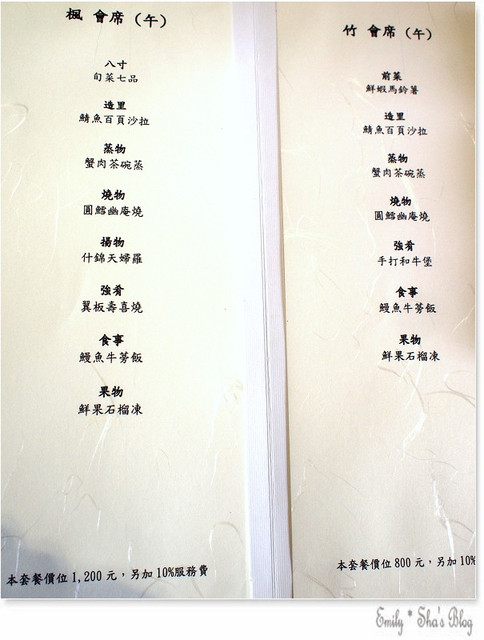 楓 會席（午）
八寸
旬菜七品
造里
鯖魚百頁沙拉
蒸物
蟹肉茶碗蒸
燒物
圓鱈幽庵燒
揚物
什錦天婦羅
強肴
翼板壽喜燒
食事
鰻魚牛蒡飯
果物
鮮果石榴凍
本套餐價位 1,200 元，另加 10%服務費
竹 會席（午）
前菜
鮮蝦馬鈴薯
造里
鯖魚百頁沙拉
蒸物
蟹肉茶碗蒸
燒物
圓鱈幽庵燒
強肴
手打和牛堡
食事
鰻魚牛蒡飯
果物
鮮果石榴凍
本套餐價位 800 元，另加 10%
Emily * Sha's Blog